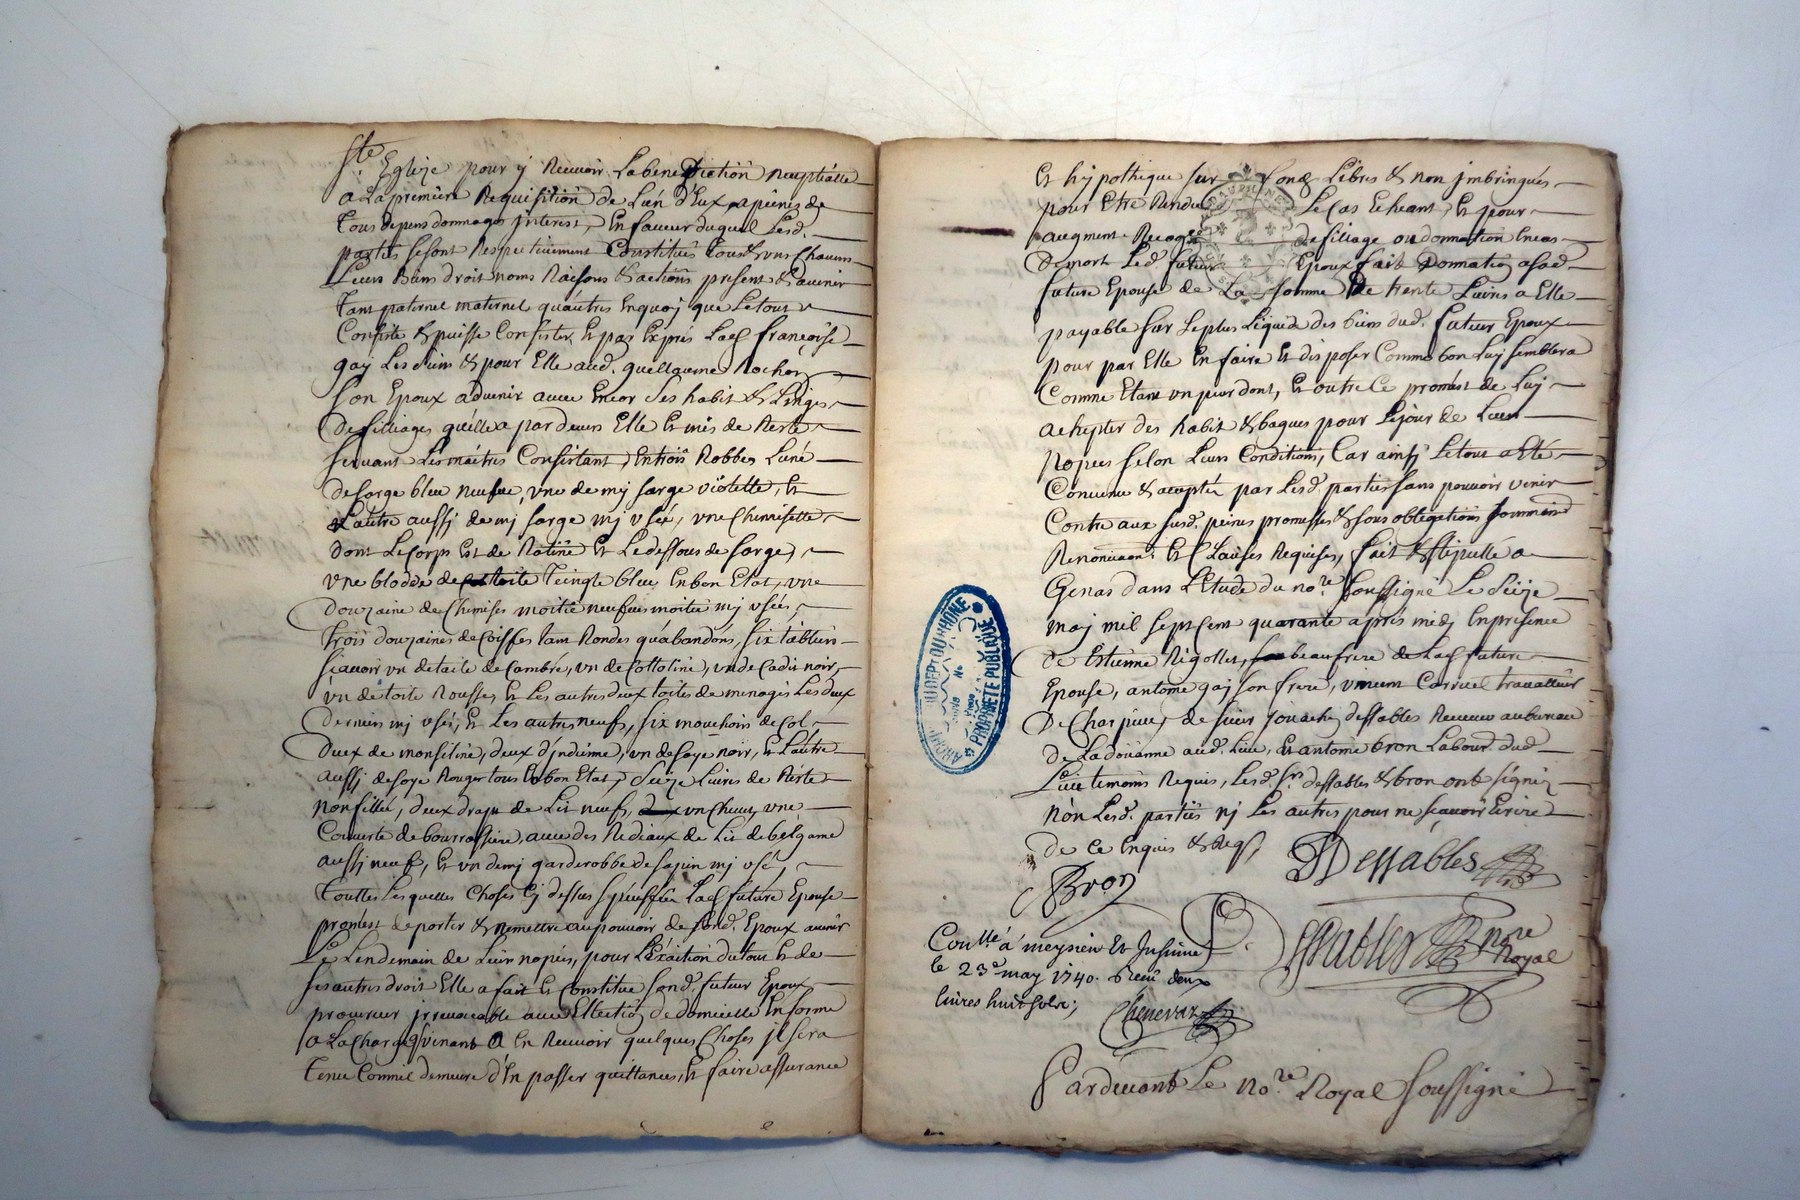 Ste Eglize pour y Recevoir La benediction nuptialle
a La premiere Requisition de L'un d'Eux, a peines de
Tous depens dommages jnterest, En faveur duquel Lesd.
parties se sont Respectivement Constitués tous & uns Chacuns
Leurs Biens droit noms Raisons & actions present & avenir
Tant paternel maternel qu'autres En quoy que Le tout
Consiste & puisse Consister, Et par Exprés Lad françoise
gay Les siens & pour Elle aud. guellaume Rochon
son Epoux advenir avec Encor ses habit & Linges
de filliages qu'elle a par devers Elle Et mis de Reste
servant Les maitres Consistant, En trois Robbes L'une
de sarge bleu neufve, une de mj sarge violette, Et
L'autre aussj de mj sarge mj usée, une Chemisette
dont Le Corps Est de Ratine Et Le dessous de sarge,
une blodde de toile Teingte bleu En bon Etat, une
Douzaine de Chemises moitié neufves moitié mj usées,
Trois douzaines de Coiffes tant Rondes qu'abandons, six tabliers
sçavoir un de toile de Cambré, un de Cottoline, un de Cadis noir,
un de toile Rousse, Et Les autres deux toiles de menages Les deux
Derniers mj usés, Et Les autres neufs, six mouchoirs de Col,
Deux de monseline, deux d'jndienne, un de soye noir, Et L'autre
aussj de soye Rouge tous En bon Etat, seize Livres de
non fillée, deux draps de Lit neufs, un Chevet, une
Couverte de bourrassiere, avec des Rediaux de Lit de bergame
aussj neufs, Et un demj garderobbe de sapin mj usé,
Touttes Lesquelles Choses Cj dessus speciffiées Lad future Epouse
promest de porter & Remettre au pouvoir de sond. Epoux avenir
Le Lendemain de Leurs nopces, pour L'exaction du tout Et de
ses autres droit Elle a fait Et Constitué sond. futur Epoux
procureur jrrevocable avec Ellection de domicille En forme
a La Charge qu'venant a En Recevoir quelques Choses jl sera
Tenu Comme jl demeure d'En passer quittances, Et faire assurance
Et hypotheque sur fondz Libres & non jmbringués
pour Etre Rendu Le Cas Echeant, Et pour
augment de filiage ou donnation En cas
De mort Led. futur Epoux fait Donnation a sad
future Epouse de La somme De trente Livres a Elle
payable sur Le plus Liquide des biens dud. futur Epoux
pour par Elle En faire Et disposer Comme bon Luy semblera
Comme Etant un pur dont, Et outre Ce promest de Luy
achepter des habit & bagues pour Le jour de Leurs
nopces selon Leurs Conditions, Car ainsj Le tout a Eté
Convenu & accepté par Lesd. parties sans pouvoir venir
Contre aux susd. peines promesses & sous obligations
Renonciaon. Et Clauses Requises, fait & stipullé a
Genas dans L'Etude du nore. soussigné Le seize
may mil sept Cent quarante après midj En presence
de Estienne Rigollet, beaufrere de Lad future
Epouse, antoine gay son frere, vincent Carruel travailleur
De Charpieu, de sieur joachin dessables Receveur au bureau
de La doüanne aud. Lieu, Et antoine bron Labour. dud
Lieu temoins Requis, Lesd. sr. dessables & bron ont signé
non Lesd. parties nj Les autres pour ne sçavoir Ecrire
de Ce Enquis & Req.
Dessables
Bron
Dessables nore
Royal
Coullé a meyzieu Et Insinué
le 23e may 1740. Receu deux
livres huit sols;
Chenevaz
Pardevant Le nore. Royal soussigné
PROPRIETE PUBLIQUE